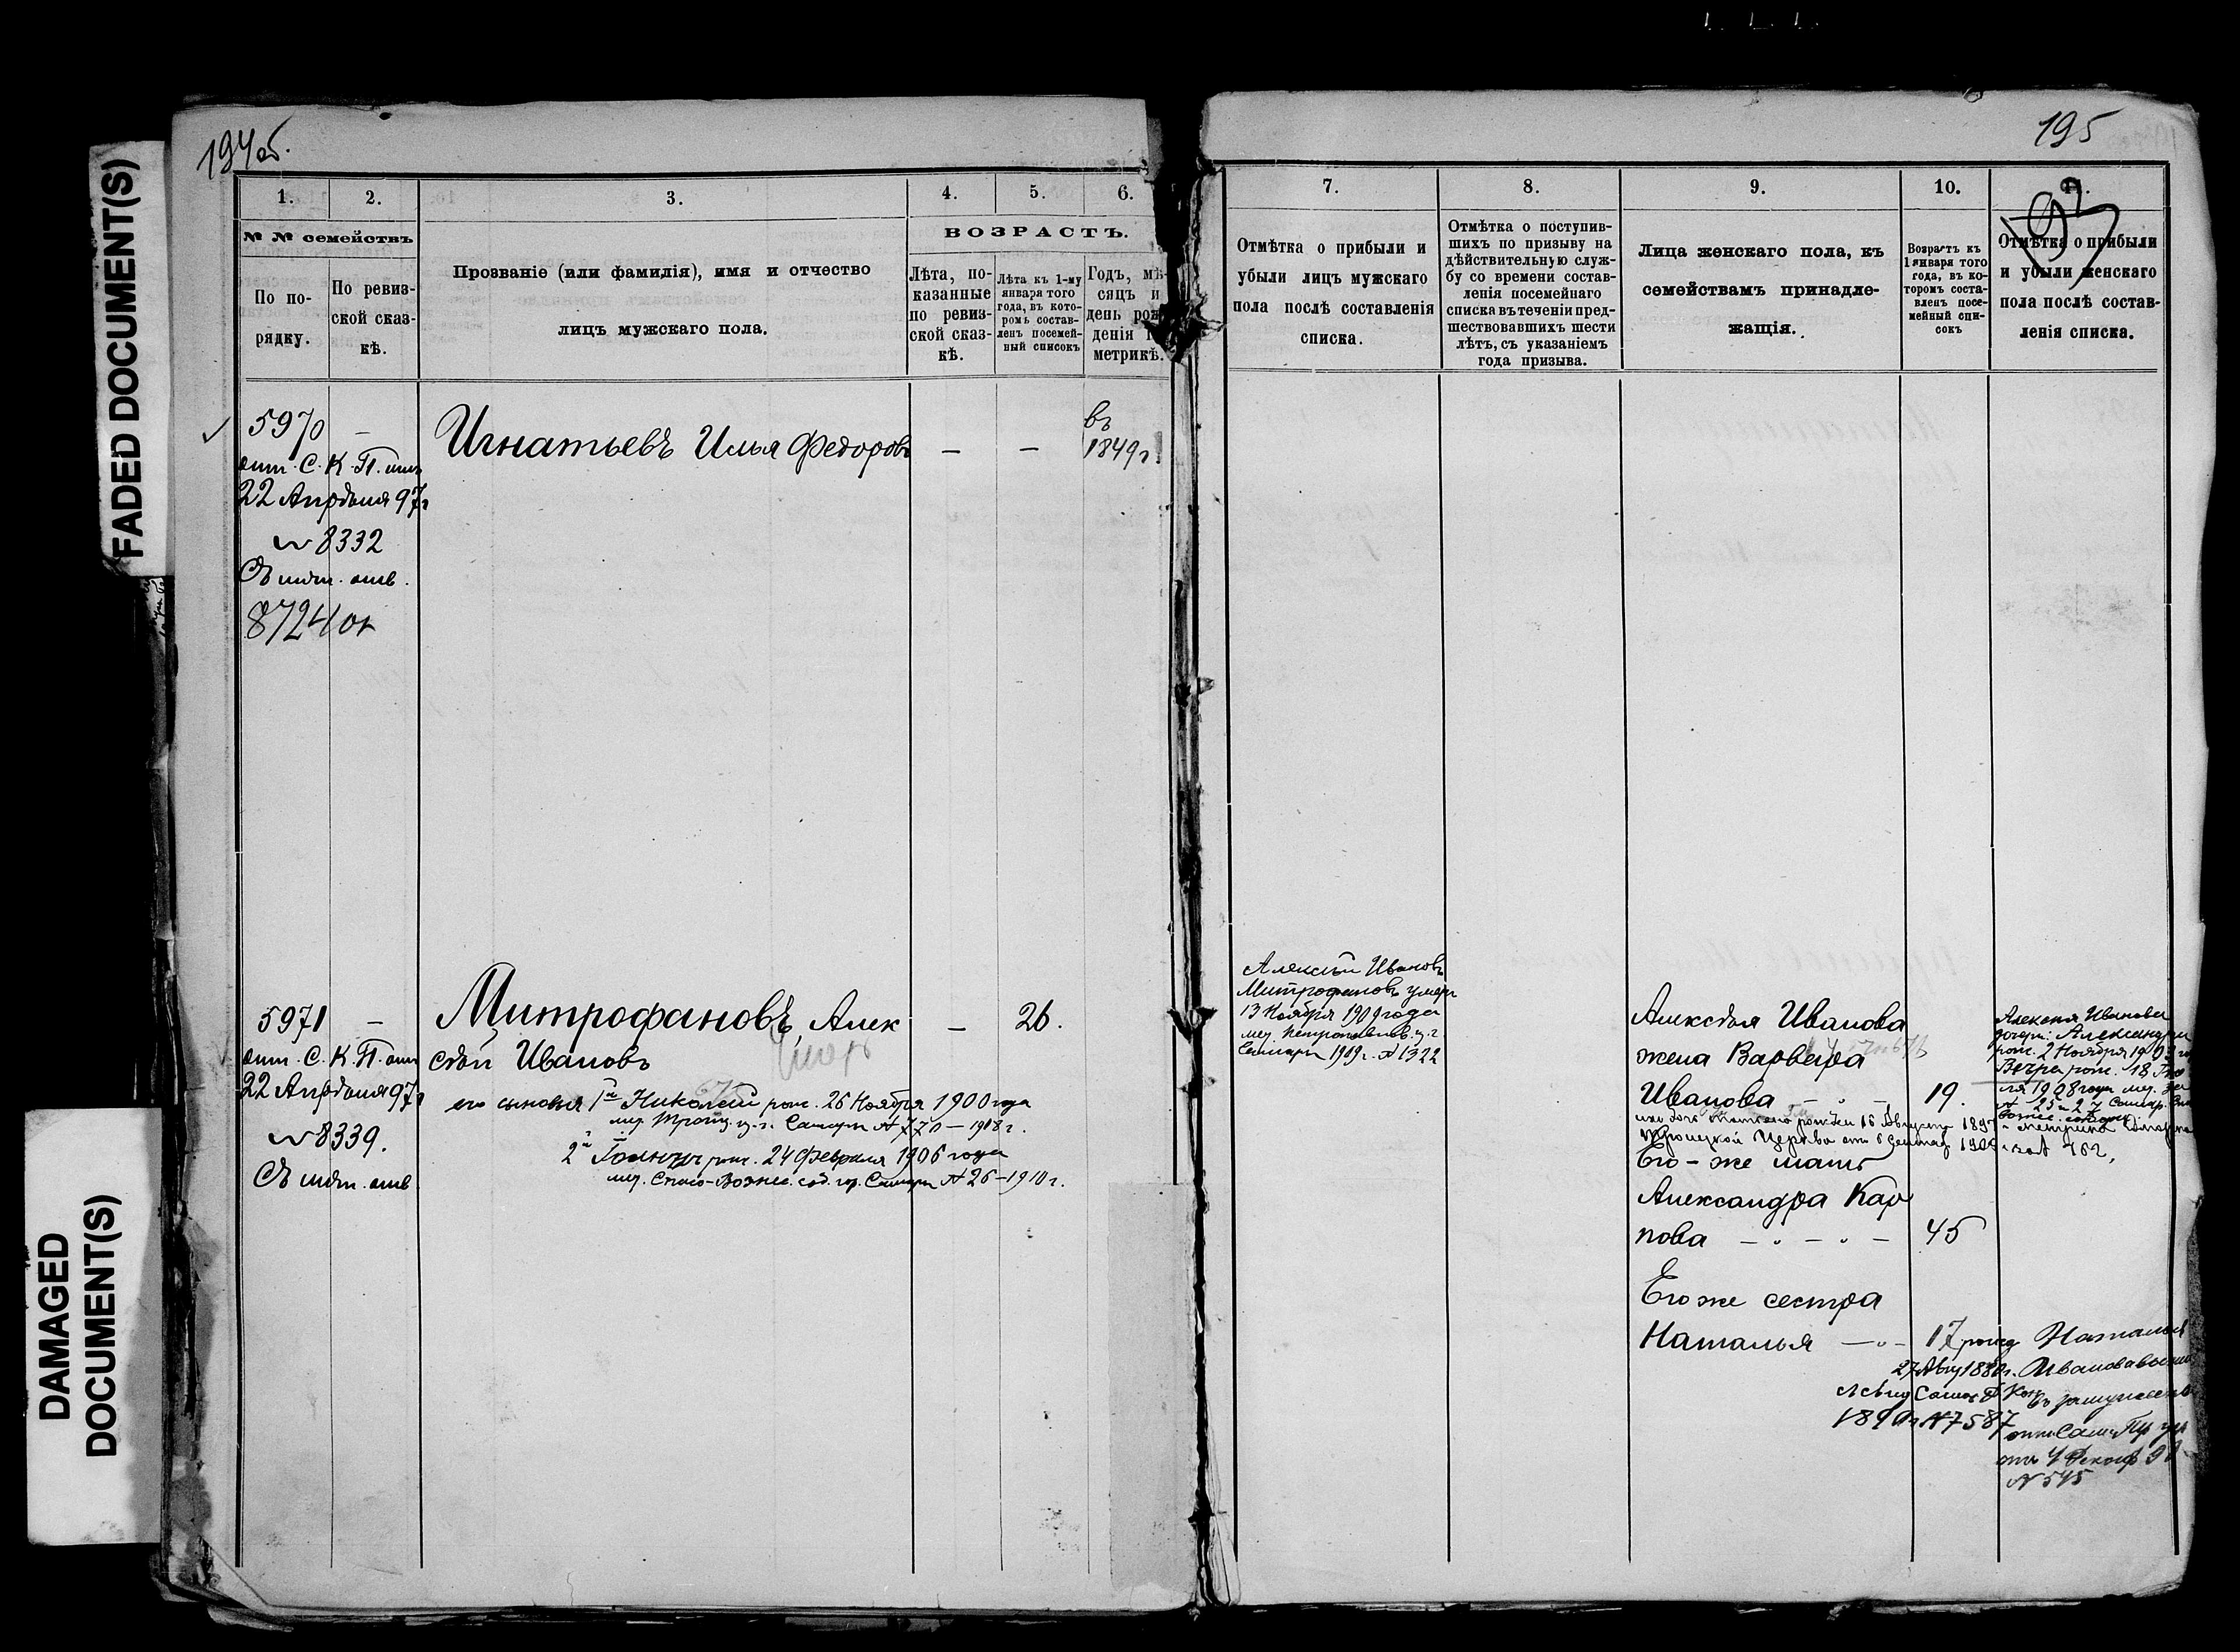 FADED DOCUMENT(S)
DAMAGED
DOCUMENT(S)
194об.
1.
2.
3.
4.
5.
6.
№ № семействъ
ВОЗРАСТЪ.
По по-
рядку.
По ревиз-
ской сказ-
кѣ.
Прозваніе (или фамилія), имя и отчество
лицъ мужскаго пола.
Лѣта, по-
казанные
по ревиз-
ской сказ-
кѣ.
Лѣта къ 1-му
января того
года, въ кото-
ромъ состав-
ленъ посемей-
ный списокъ
Годъ, мѣ-
сяцъ и
день рож
денія
метрикѣ.
5970 —
отн. С. К. П. отъ
22 Апрѣля 97г
№ 8332
Съ мѣт. отв.
8724
Игнатьевъ Илья Федоровъ
— —
въ
1849г.
5971 —
отн. С. К. П. отъ
22 Апрѣля 97г
№ 8339.
Съ мѣт. отв
Митрофановъ, Алек
сѣй Ивановъ
— 26.
его сыновья 1й Николай рож. 26 Ноября 1900 года
мер. Троиц. ц. г. Самары № 770 — 1918 г.
2й рож. 24 Февраля 1906 года
мер. Спасо-Вознес. соб. гор. Самары № 26 — 1910 г.
195
7.
8.
9.
10.
Отмѣтка о прибыли и
убыли лицъ мужскаго
пола послѣ составленія
списка.
Отмѣтка о поступив-
шихъ по призыву на
дѣйствительную служ-
бу со времени состав-
ленія посемейнаго
списка въ теченіи пред-
шествовавшихъ шести
лѣтъ, съ указаніемъ
года призыва.
Лица женскаго пола, къ
семействамъ принадле-
жащія.
Возрастъ къ
1 января того
года, въ ко-
торомъ соста-
вленъ посе-
мейный спи-
сокъ
Отмѣтка о прибыли
и убыли женскаго
пола послѣ состав-
ленія списка.
Алексѣй Ивановъ
Митрофановъ умеръ
13 Ноября 1909 года
мер. Петропавлов. ц. г.
Самары 1909 г. № 1322
Алексѣя Иванова
жена Варвара
Иванова — " — 19.
ихъ дочь рожден 16 Августа 1897
Троицкой Церкви от 6 1908 за № 762,
Его-же мать
Александра Кар
пова — " — " — 45
Его же сестра
Наталья — " — 17
рожд
27 Авг 1880 г.
№ 7587
Алексѣя Иванова
дочери: Александра
рож. 2 Ноября
Вѣра рож. 18
1908 года мер. за
№ 25 и 27 Самар.
Наталья
Иванова
въ замужество
отъ 4
№ 545